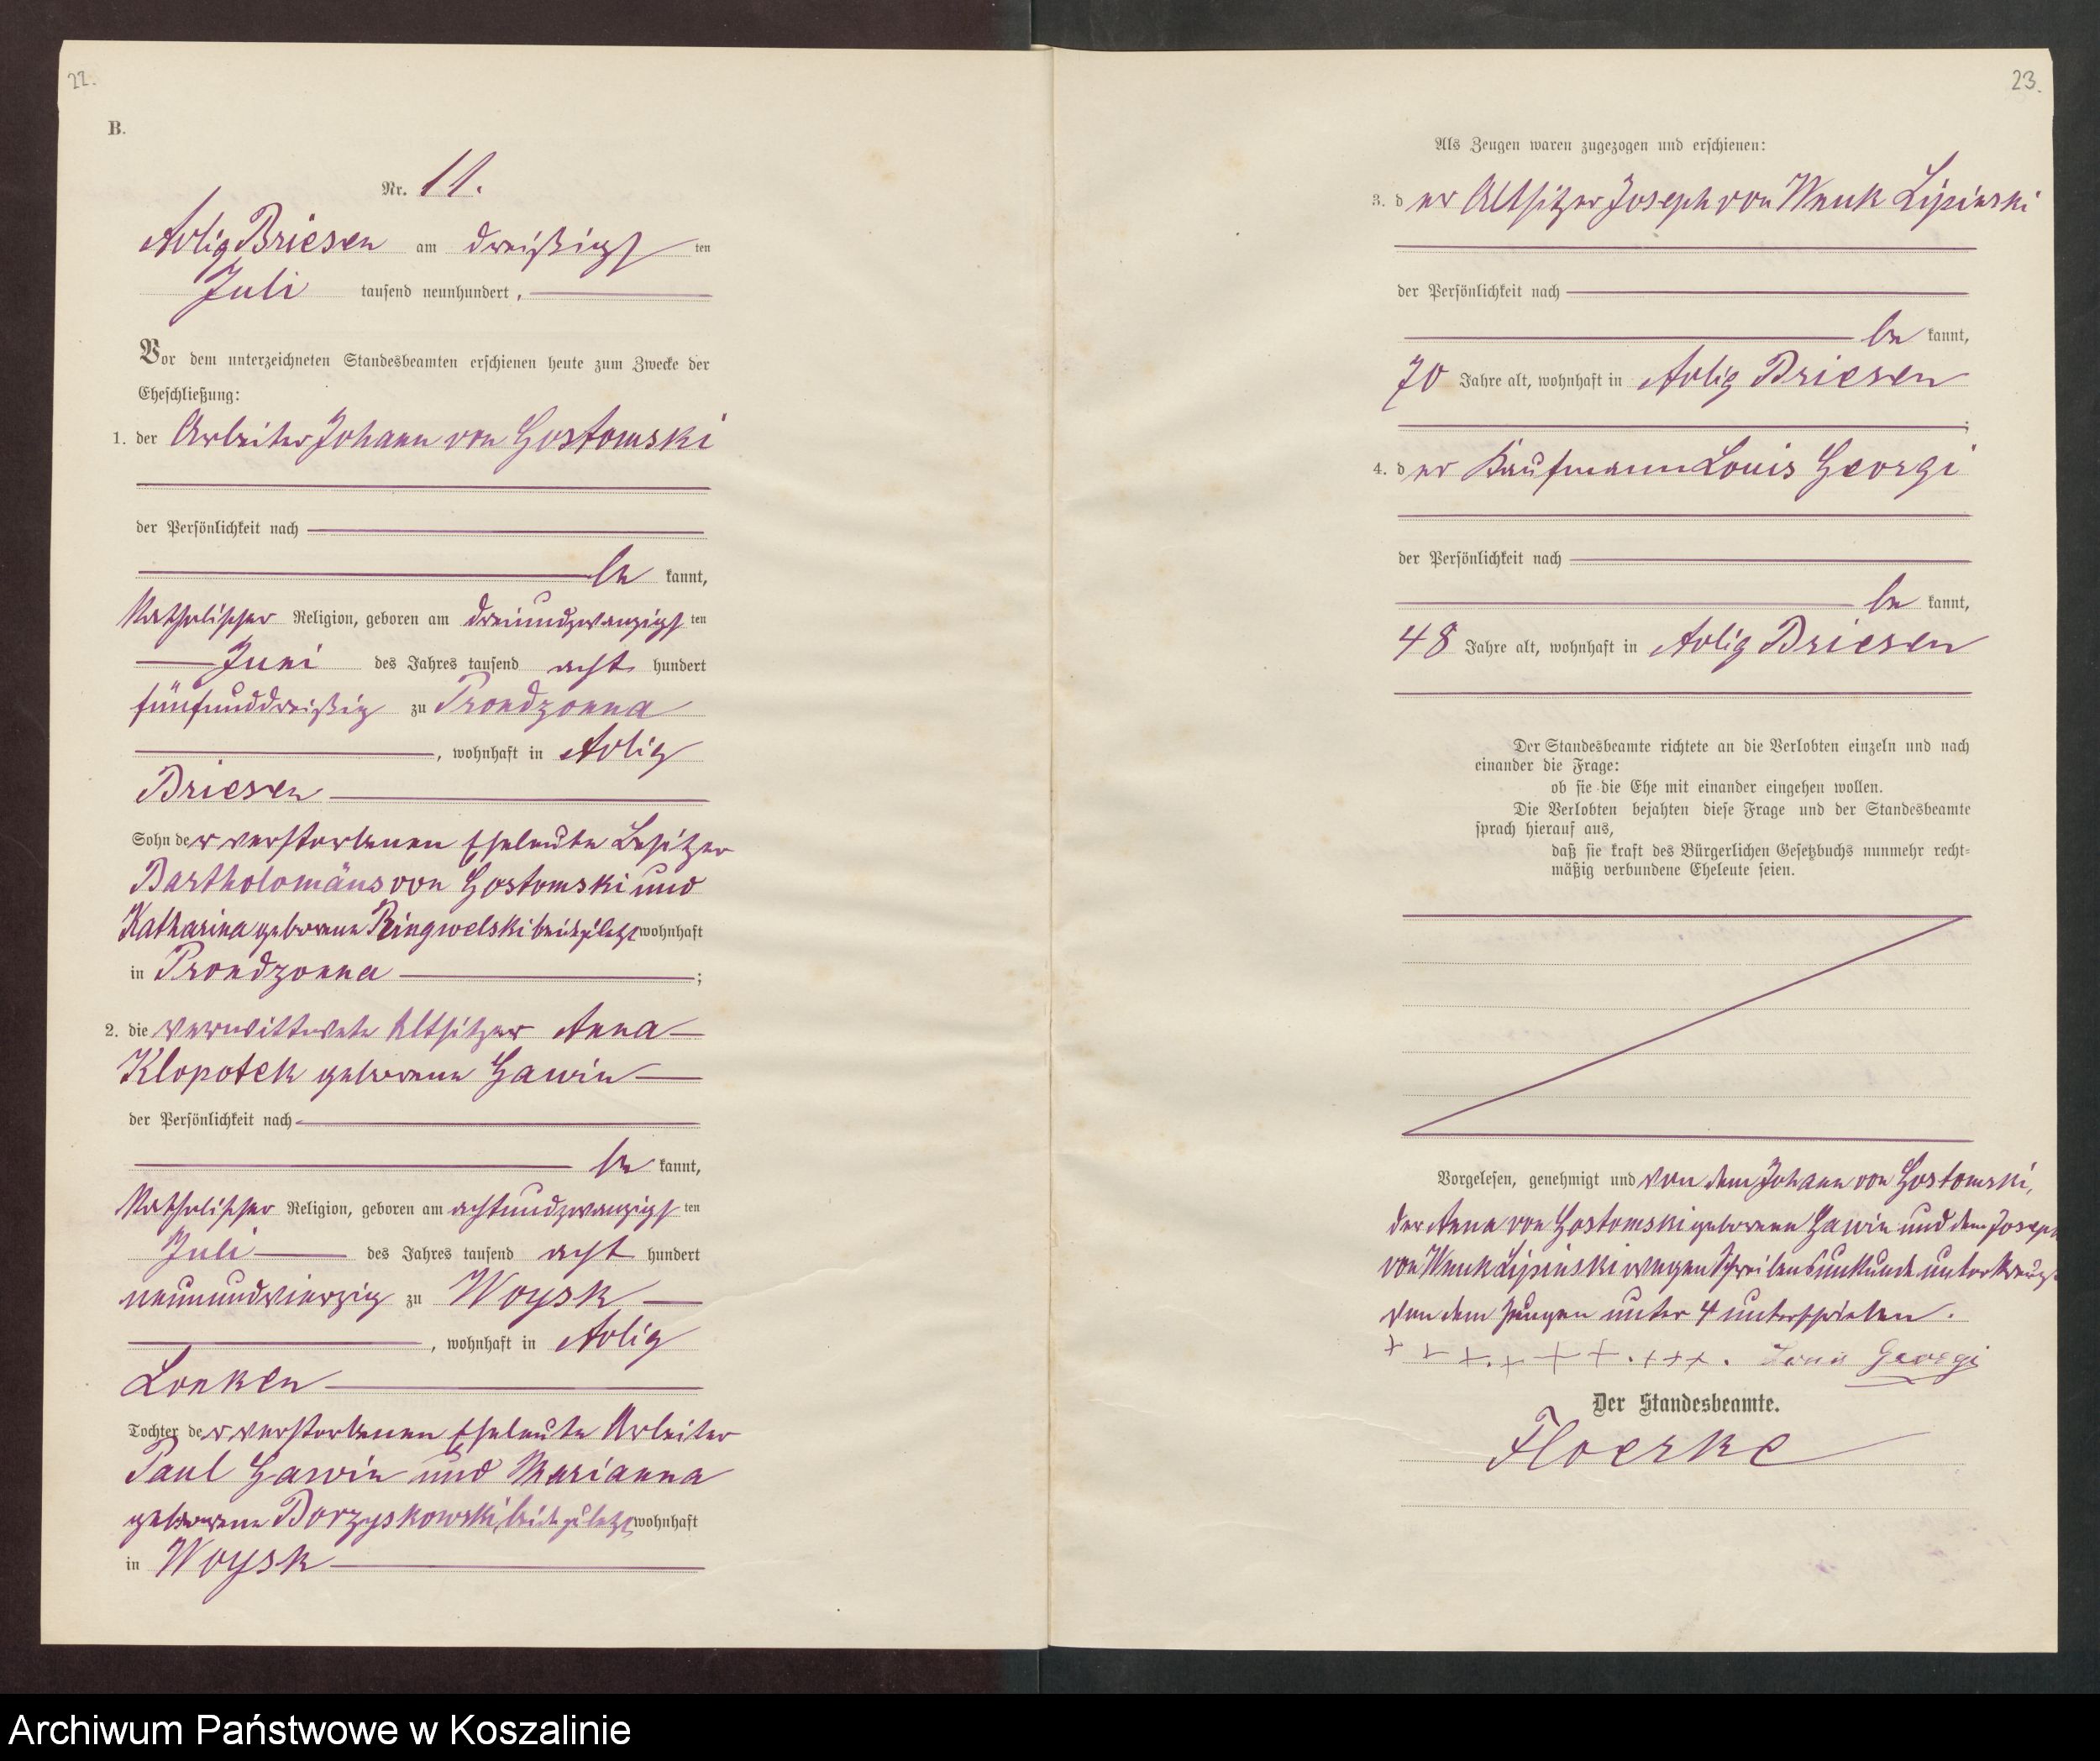 22.
B.
Nr. 11.
Adlig Briesen am dreißigsten
Juli tausend neunhundert,
Vor dem unterzeichneten Standesbeamten erschienen heute zum Zwecke der
Eheschließung:
1. der Arbeiter Johann von Gostomski
der Persönlichkeit nach
bekannt,
katholischer Religion, geboren am dreiundzwanzigsten
Juni des Jahres tausend acht hundert
fünfunddreißig zu Prondzonna
, wohnhaft in Adlig
Briesen
Sohn der verstorbenen Eheleute Besitzer
Bartholomäus von Gostomski und
Katharina geborene Ringwelski beide zuletzt wohnhaft
in Prondzonna ;
2. die verwittwete Altsitzer Anna
Klopotek geborene Gawin
der Persönlichkeit nach
bekannt,
katholischer Religion, geboren am achtundzwanzigsten
Juli des Jahres tausend acht hundert
neunundvierzig zu Woysk
, wohnhaft in Adlig
Lonken
Tochter der verstorbenen Eheleute Arbeiter
Paul Gawin und Marianna
geborene Borzyskowski, beide zuletzt wohnhaft
in Woysk
23.
Als Zeugen waren zugezogen und erschienen:
3. der Altsitzer Joseph von Wnuk Lipinski
der Persönlichkeit nach
bekannt,
70 Jahre alt, wohnhaft in Adlig Briesen
;
4. der Kaufmann Louis Georgi
der Persönlichkeit nach
bekannt,
48 Jahre alt, wohnhaft in Adlig Briesen
Der Standesbeamte richtete an die Verlobten einzeln und nach
einander die Frage:
ob sie die Ehe mit einander eingehen wollen.
Die Verlobten bejahten diese Frage und der Standesbeamte
sprach hierauf aus,
daß sie kraft des Bürgerlichen Gesetzbuchs nunmehr recht-
mäßig verbundene Eheleute seien.
Vorgelesen, genehmigt und von dem Johann von Gostomski,
der Anna von Gostomski geborene Gawin und dem Joseph
von Wnuk Lipinski wegen Schreibensunkunde unterkreuzt
von dem Zeugen unter 4 unterschrieben.
+ + +.+ + +.+++. Louis Georgi
Der Standesbeamte.
Floerke
Archiwum Państwowe w Koszalinie